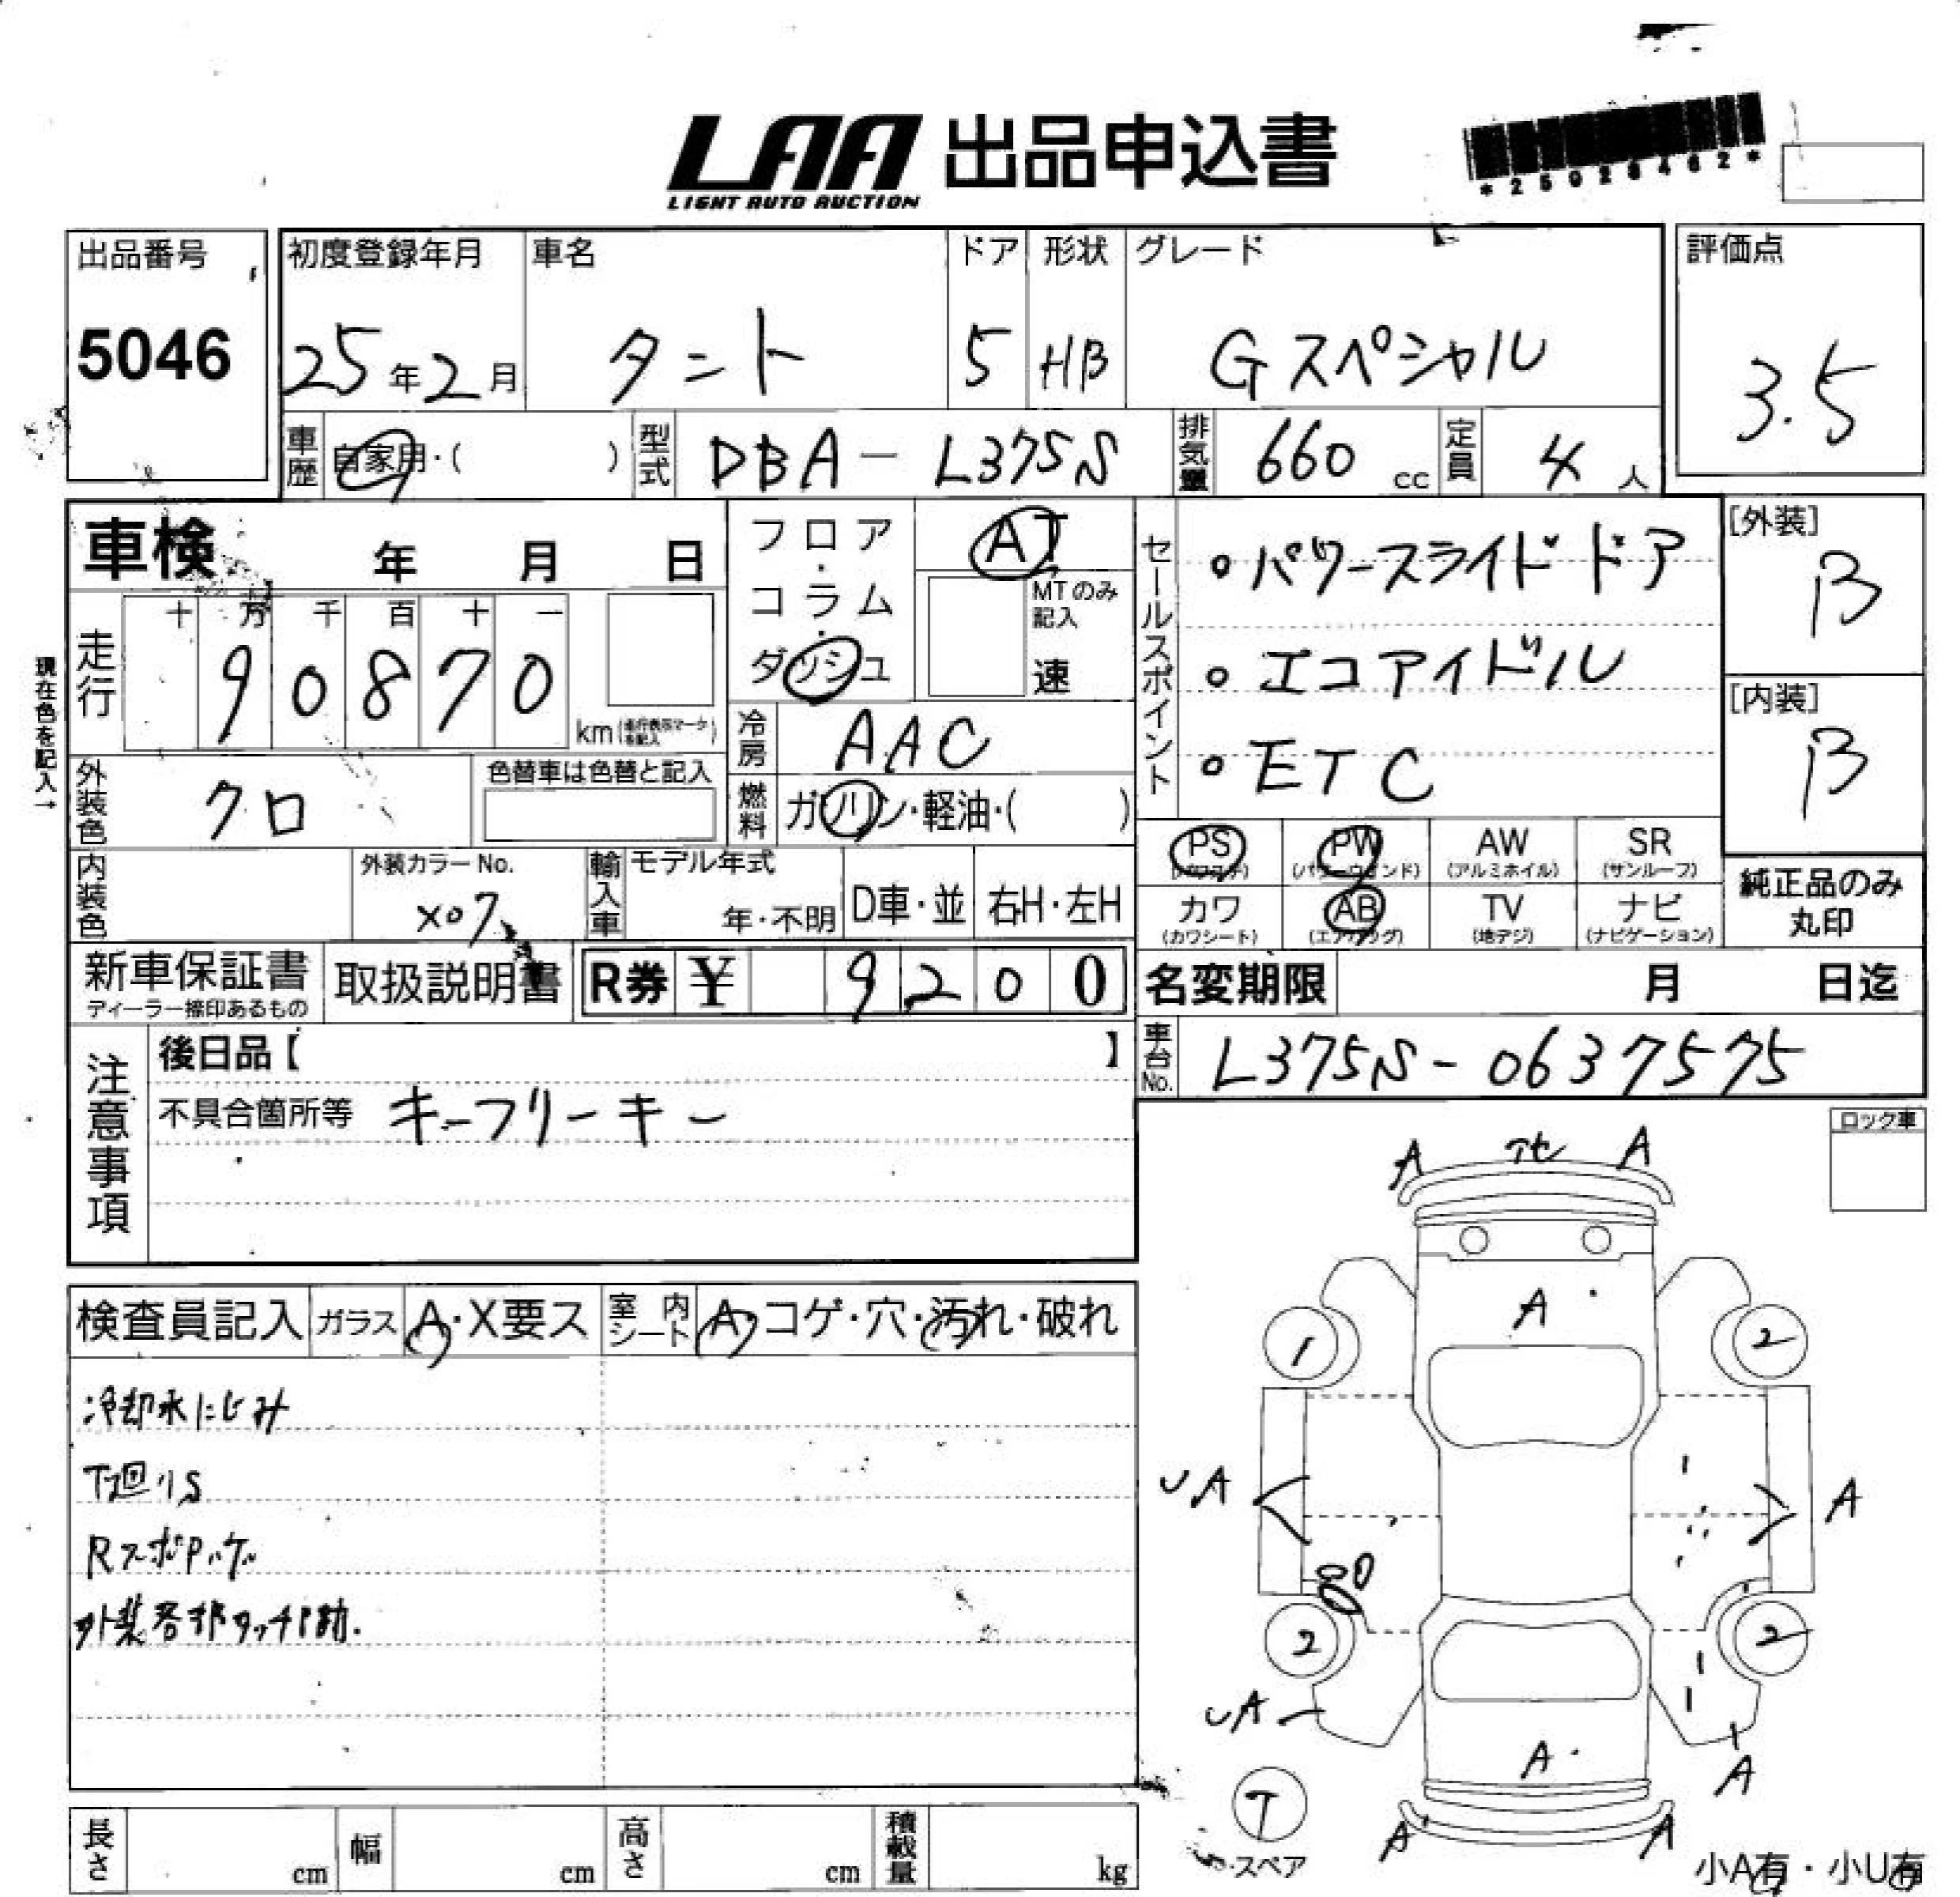 LAA 出品申込書
LIGHT AUTO AUCTION
*25028462*
出品番号
5046
初度登録年月
25年2月
車名
タント
ドア
5
形状
HB
グレード
Gスペシャル
評価点
3.5
車歴
自家用・( )
型式
DBA-L375S
排気量
660 cc
定員
4人
車検 年 月 日
フロア・コラム・ダッシュ
AT
MTのみ記入
速
セールスポイント
・パワースライドドア
・エコアイドル
・ETC
[外装]
B
[内装]
B
現在色を記入→
走行
十 万 千 百 十 一
90870
km
冷房
AAC
外装色
クロ
色替車は色替と記入
燃料
ガソリン・軽油・( )
PS
PW (パワーウインド)
AW (アルミホイル)
SR (サンルーフ)
カワ (カワシート)
AB (エアバッグ)
TV (地デジ)
ナビ (ナビゲーション)
純正品のみ丸印
内装色
外装カラーNo.
X07
輸入車
モデル年式
年・不明
D車・並
右H・左H
新車保証書
ディーラー捺印あるもの
取扱説明書
R券 ¥ 9200
名変期限 月 日迄
車台No.
L375S-0637575
注意事項
後日品【 】
不具合箇所等 キーフリーキー
ロック車
検査員記入
ガラス A・X要ス
室内シート A・コゲ・穴・汚れ・破れ
冷却水にじみ
下廻りS
外装各部タッチP跡.
A アセ A
A
1 2
UA A
2 2
UA
A
A
T
スペア
A A
小A有・小U有
長さ cm
幅 cm
高さ cm
積載量 kg